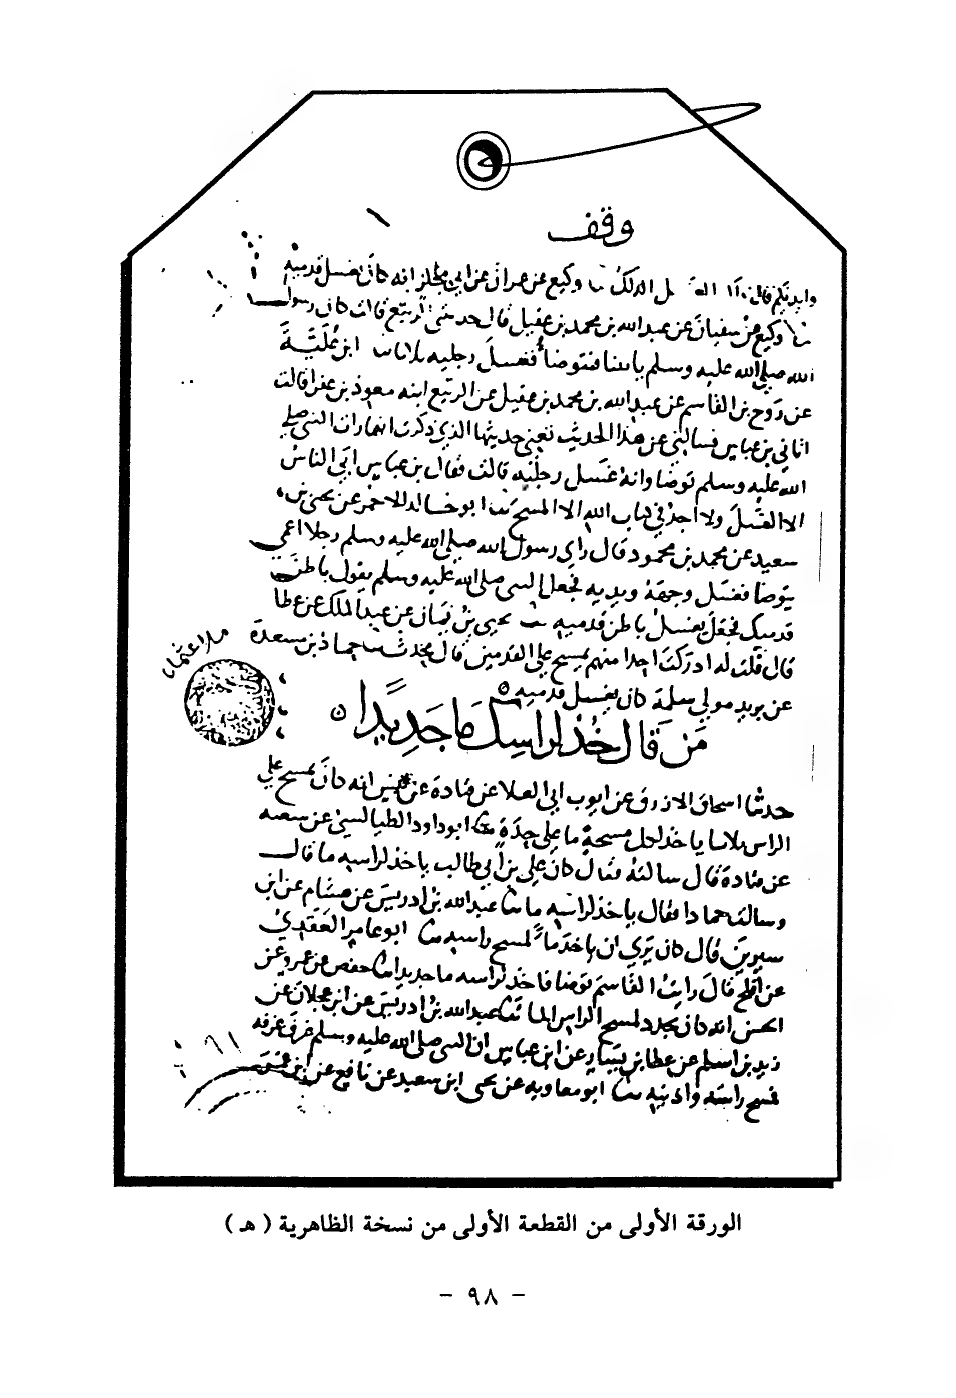 وقف
وايديكم قال وكيع عن عمران عن ابي مجلز انه كان يغسل قدميه
وكيع عن سفيان عن عبد الله بن محمد بن عقيل قال حدثتني الربيع قالت كان رسول
الله صلى الله عليه وسلم ياتينا فتوضأ فغسل رجليه ثلاثا ابن علية
عن روح بن القاسم عن عبد الله بن محمد بن عقيل عن الربيع ابنه معوذ بن عفرا قالت
اتاني بن عباس فسالني عن هذا الحديث تعني حديثها الذي ذكرت انها رات النبي صلى
الله عليه وسلم توضا وانه غسل رجليه قالت فقال بن عباس ابي الناس
الا الغسل ولا اجد في كتاب الله الا المسح ثنا ابو خالد الاحمر عن يحيى بن
سعيد عن محمد بن محمود قال راي رسول الله صلى الله عليه وسلم رجلا اعمى
يتوضا فغسل وجهه ويديه فجعل النبي صلى الله عليه وسلم يقول باطن
قدميك فجعل يغسل باطن قدميه ثنا يحيى بن يمان عن عبد الملك عن عطا
قال قلت له ادركت احدا منهم يمسح على القدمين قال محدث ثنا حماد بن مسعدة
عن يزيد مولى سلمة كان يغسل قدميه
من قال خذ لراسك ما جديدا
حدثنا اسحاق الازرق عن ايوب ابي العلا عن قتادة عن انس انه كان يمسح على
الراس ثلاثا ياخذ لكل مسحة ما على حدة ثنا ابو داود الطيالسي عن شعبه
عن قتادة قال سالته فقال كان علي بن ابي طالب ياخذ لراسه ما قال
وسالت حمادا فقال ياخذ لراسه ما ثنا عبد الله بن ادريس عن هشام عن ابن
سيرين قال كان يري ان ياخذ ما لمسح راسه ثنا ابو عامر العقدي
عن افلح قال رايت القاسم توضا فاخذ لراسه ما جديدا ثنا حفص عن عمرو عن
الحسن انه كان يجدد لمسح الراس الما ثنا عبد الله بن ادريس عن ابن عجلان عن
زيد بن اسلم عن عطا بن يسار عن ابن عباس ان النبي صلى الله عليه وسلم غرف غرفه
فمسح راسه واذنيه ثنا ابو معاويه عن يحيى ابن سعيد عن نافع عن ابن عمر
الورقة الأولى من القطعة الأولى من نسخة الظاهرية ( هـ )
- ٩٨ -